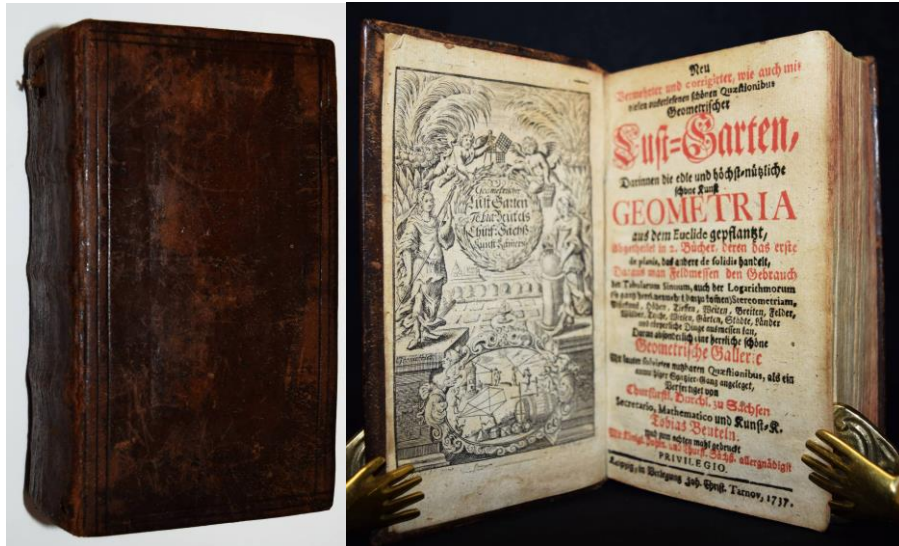 Geometrischer
Lust Garten
Tobiae Beutels
Churf: Sächß
Kunst
Neu
Vermehrter und corrigirter, wie auch mit
vielen auserlesenen schönen Quæstionibus
Geometrischer
Lust=Garten,
Darinnen die edle und höchst=nützliche
schöne Kunst
GEOMETRIA
aus dem Euclide gepflantzt,
Abgetheilet in 2. Bücher, deren das erste
de planis, das andere de solidis handelt,
Daraus man Feldmessen den Gebrauch
der Tabularum Sinuum, auch der Logarithmorum
Stereometriam,
Höhen, Tieffen, Weiten, Breiten, Felder,
Wälder, Teiche, Wiesen, Gärten, Städte, Länder
und cörperliche Dinge ausmessen kan,
Daran absonderlich eine herrliche schöne
Geometrische Gallerie
Mit lauter nutzbaren Quæstionibus, als ein
Spatzier=Gang angeleget,
Verfertiget von
Churfürstl. Durchl. zu Sachsen
Secretario, Mathematico und Kunst=K.
Tobias Beuteln.
Und zum achten mahl gedruckt
Mit Königl. Pohln. und Churfl. Sächs. allergnädigst
PRIVILEGIO.
Leipzig, in Verlegung Joh. Christ. Tarnov, 1737.